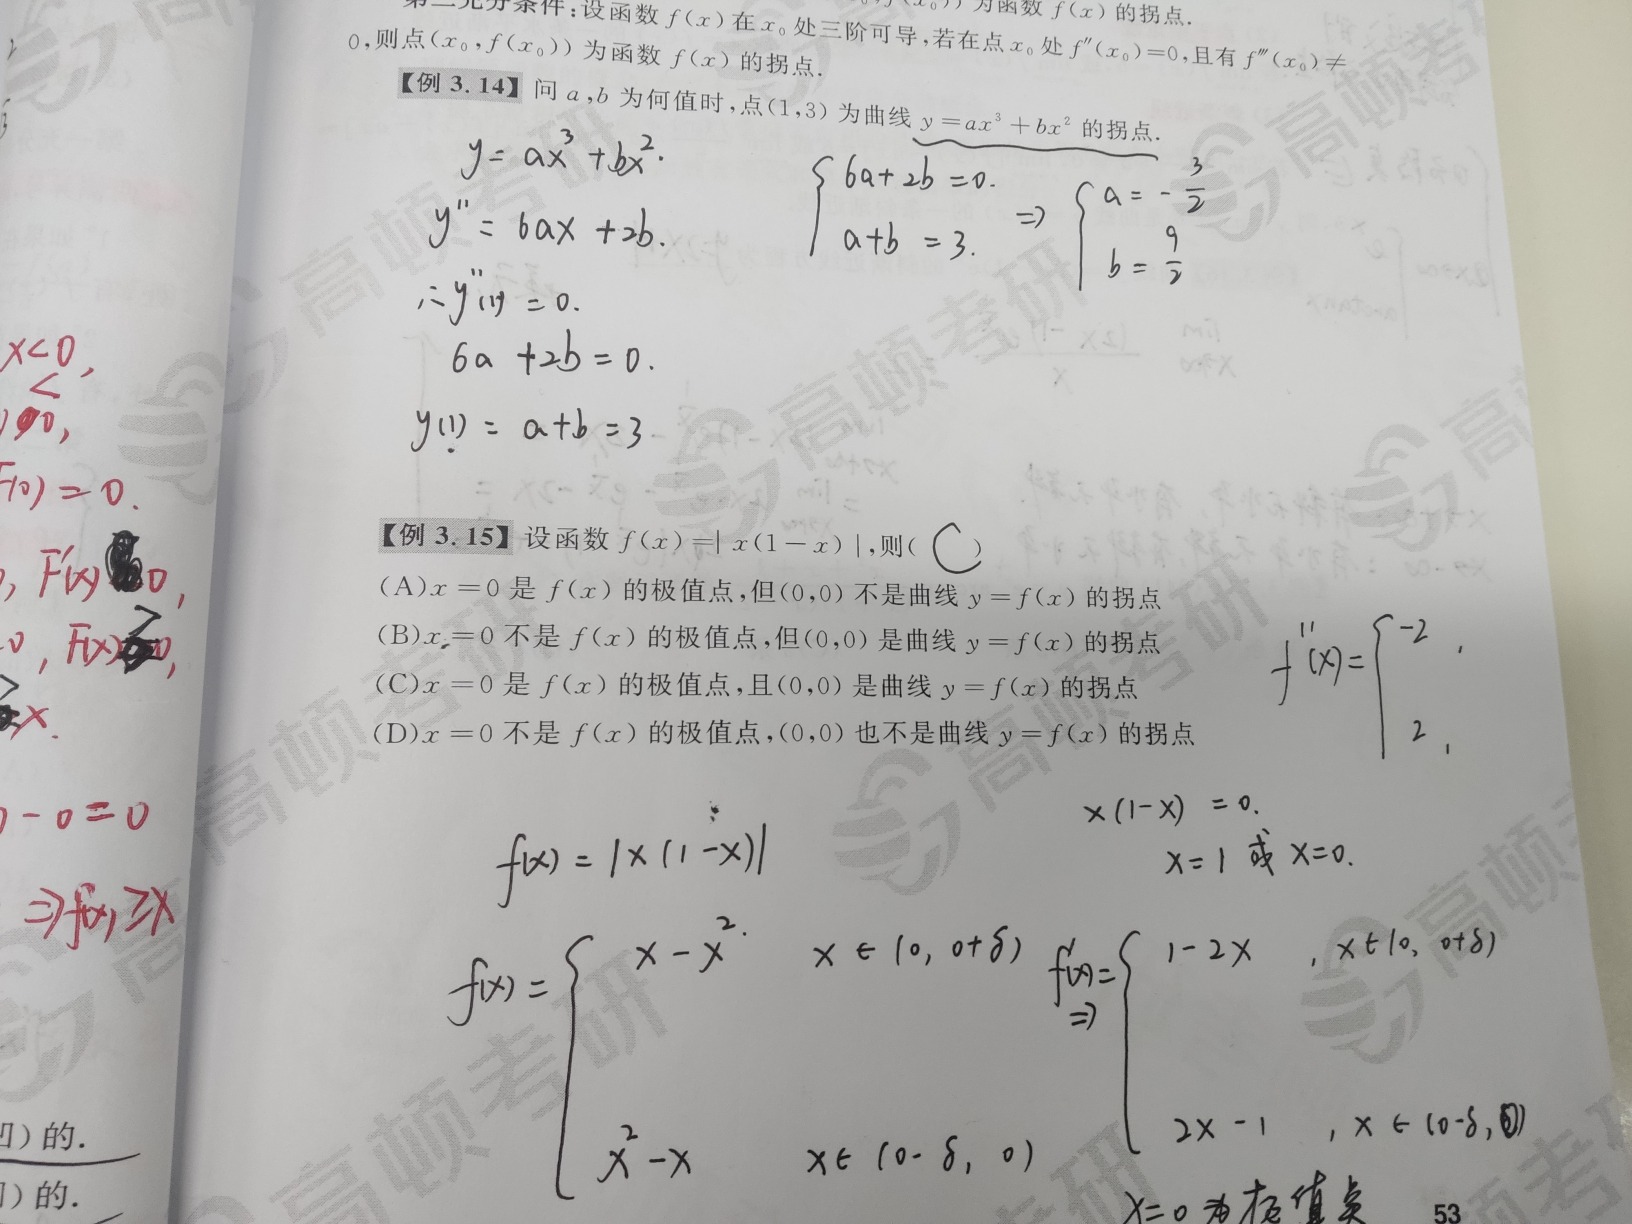 第二充分条件:设函数 f(x) 在 x₀ 处三阶可导,若在点 x₀ 处 f″(x₀)=0,且有 f‴(x₀)≠
为函数 f(x) 的拐点.
0,则点(x₀,f(x₀)) 为函数 f(x) 的拐点.
【例 3.14】 问 a,b 为何值时,点(1,3) 为曲线 y=ax³+bx² 的拐点.
y = ax³ + bx².
y″ = 6ax + 2b.
∴ y″(1) = 0.
6a + 2b = 0.
y(1) = a+b = 3
{ 6a + 2b = 0.
a+b = 3.
⇒ { a = - 3/2
b = 9/2
【例 3.15】 设函数 f(x)=| x(1-x) |,则( C )
(A)x=0 是 f(x) 的极值点,但(0,0) 不是曲线 y=f(x) 的拐点
(B)x=0 不是 f(x) 的极值点,但(0,0) 是曲线 y=f(x) 的拐点
(C)x=0 是 f(x) 的极值点,且(0,0) 是曲线 y=f(x) 的拐点
(D)x=0 不是 f(x) 的极值点,(0,0) 也不是曲线 y=f(x) 的拐点
f″(x) = { -2 ,
2 ,
f(x) = |x(1-x)|
x(1-x) = 0.
x=1 或 x=0.
f(x) = { x - x². x ∈ (0, 0+δ)
x² - x x ∈ (0-δ, 0)
⇒ f′(x) = { 1-2x , x∈(0, 0+δ)
2x-1 , x ∈ (0-δ, 0)
x=0 为极值点
53
x<0,
<
F(0) = 0.
F′(x) 0,
F(x) 0,
x.
-0=0
⇒f(x)≥x
凹) 的.
) 的.
高顿考研
高顿考研
高顿考研
高顿考研
高顿考研
高顿考研